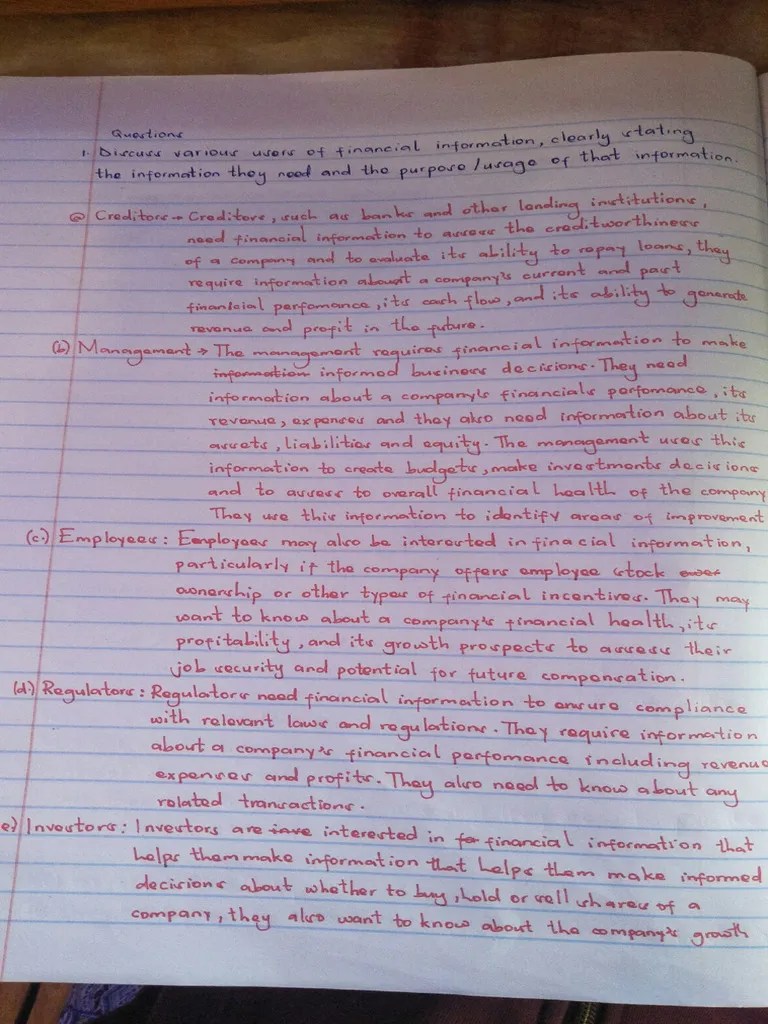 Questions
1. Discuss various users of financial information, clearly stating
the information they need and the purpose/usage of that information.
(a) Creditors → Creditors, such as banks and other lending institutions,
need financial information to assess the creditworthiness
of a company and to evaluate its ability to repay loans, they
require information about a company's current and past
financial perfomance, its cash flow, and its ability to generate
revenue and profit in the future.
(b) Management → The management requires financial information to make
information informed business decisions. They need
information about a company's financials perfomance, its
revenue, expenses and they also need information about its
assets, liabilities and equity. The management uses this
information to create budgets, make investments decisions
and to assess to overall financial health of the company
They use this information to identify areas of improvement
(c) Employees: Employees may also be interested in finacial information,
particularly if the company offers employee stock
ownership or other types of financial incentives. They may
want to know about a company's financial health, its
profitability, and its growth prospects to assess their
job security and potential for future compensation.
(d) Regulators: Regulators need financial information to ensure compliance
with relevant laws and regulations. They require information
about a company's financial perfomance including revenue
expenses and profits. They also need to know about any
related transactions.
e) Investors: Investors are interested in financial information that
helps them make information that helps them make informed
decisions about whether to buy, hold or sell shares of a
company, they also want to know about the company's growth